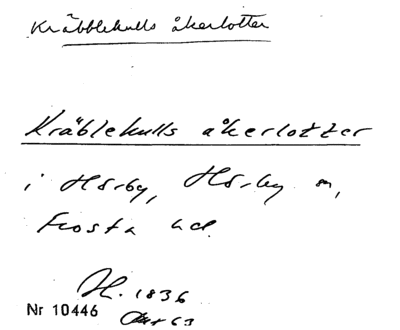 Kräbblekulls åkerlotter
Kräblekulls åkerlotter
i Hörby, Hörby sn,
Frosta hd.
H. 1836
Nr 10446
Akt 63